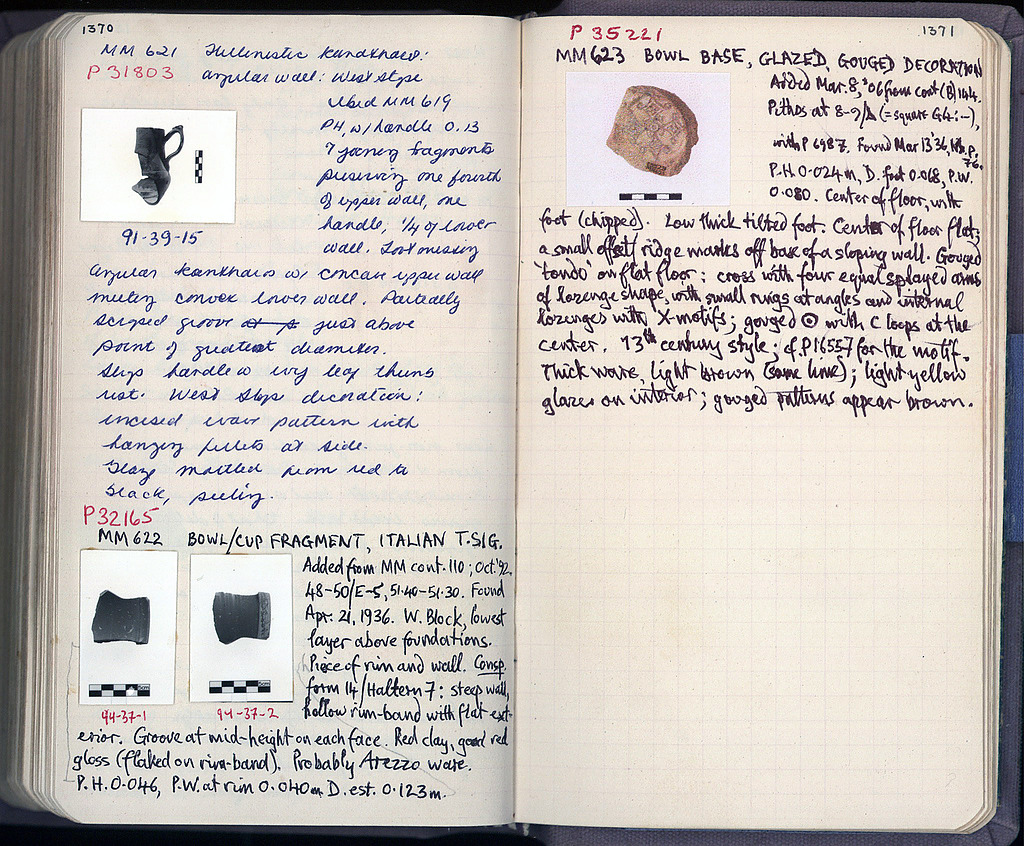 1370
MM 621 Hellenistic Kantharos:
P 31803 angular wall: West Slope
Used MM 619
PH, w/handle 0.13
7 joining fragments
preserving one fourth
of upper wall, one
handle, 1/4 of lower
wall. Foot missing
91-39-15
Angular kantharos w concave upper wall
meeting convex lower wall. Partially
scraped groove just above
point of greatest diameter.
Strap handle w ivy leaf thumb
rest. West Slope decoration:
incised wave pattern with
hanging fillets at side.
Glaze mottled from red to
black, peeling.
P32165
MM 622 BOWL/CUP FRAGMENT, ITALIAN T.SIG.
Added from MM cont. 110; Oct.'92.
48-50/E-5, 51.40-51.30. Found
Apr. 21, 1936. W. Block, lowest
layer above foundations.
Piece of rim and wall. Consp.
form 14/Haltern 7: steep wall,
hollow rim-band with flat ext-
94-37-1 94-37-2
erior. Groove at mid-height on each face. Red clay, good red
gloss (flaked on rim-band). Probably Arezzo ware.
P.H. 0.046, P.W. at rim 0.040m D. est. 0.123m.
1371
P 35221
MM623 BOWL BASE, GLAZED, GOUGED DECORATION
Added Mar. 8, '06 from cont (B) 144.
Pithos at 8-9/Δ (=square G4:-),
with P 6987. Found Mar 13'36, Nb. p.
76.
P.H. 0.024m, D. foot 0.068, P.W.
0.080. Center of floor, with
foot (chipped). Low thick tilted foot. Center of floor flat;
a small offset/ridge marks off base of a sloping wall. Gouged
'tondo' on flat floor: cross with four equal splayed arms
of lozenge shape, with small rings at angles and internal
lozenges with 'X-motifs; gouged ⊙ with C loops at the
center. 13th century style; cf. P16557 for the motif.
Thick ware, light brown (some lime); light yellow
glaze on interior; gouged patterns appear brown.